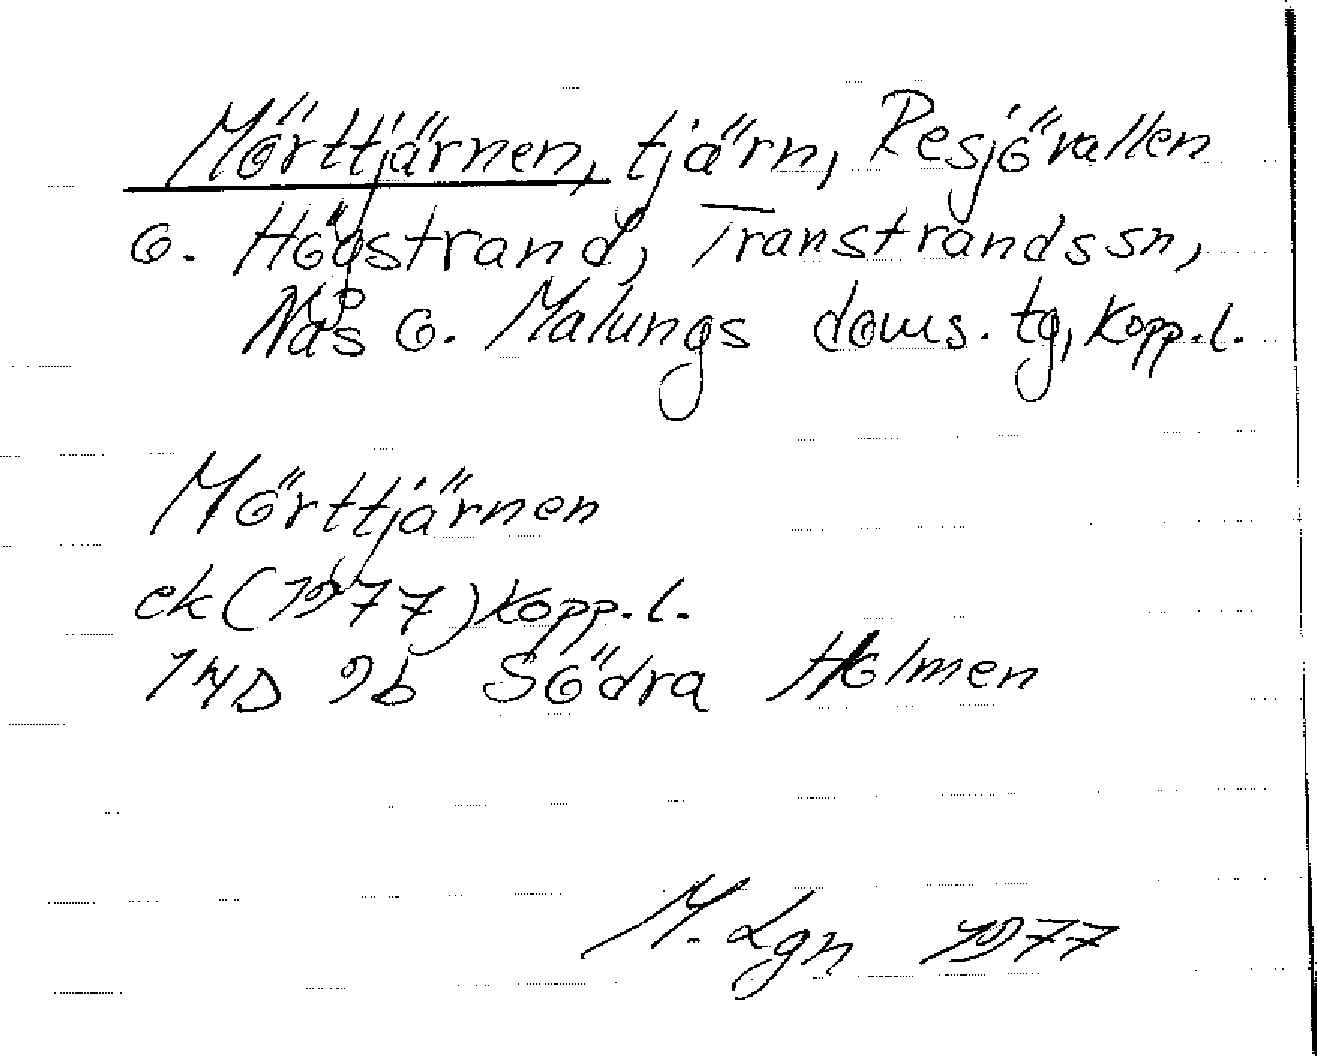 Mörttjärnen, tjärn, Resjövallen
o. Högstrand, Transtrands sn,
Nås o. Malungs doms. tg, Kopp.l.
Mörttjärnen
ek (1977) Kopp.l.
14D 9b Södra Holmen
M. Lgn 1977